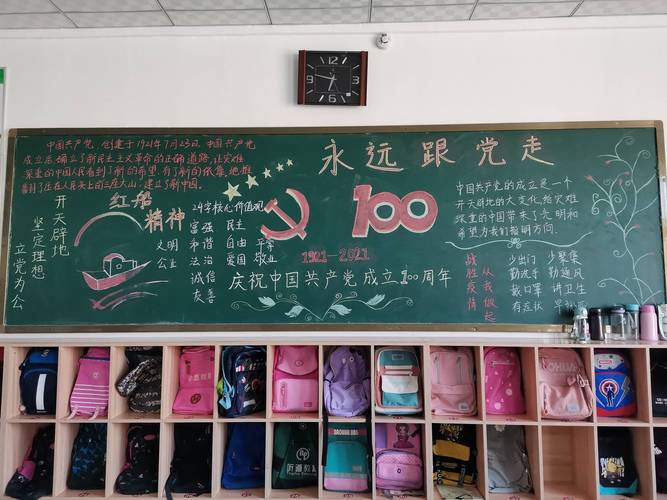 中国共产党，创建于1921年7月23日，中国共产党
成立后，确立了新民主主义革命的正确道路，让灾难
深重的中国人民看到了新的希望，有了新的依靠，她推
翻了压在人民头上的三座大山，建立了新中国。
永远跟党走
红船
精神
开天辟地
坚定理想
立党为公
文明
公正
24字核心价值观
富强 民主
和谐 自由 平等
法治 爱国 敬业
诚信
友善
100
1921-2021
庆祝中国共产党成立100周年
中国共产党的成立是一个
开天辟地的大变化，给灾难
深重的中国带来了光明和
希望，为我们指明方向。
战胜疫情
从我做起
少出门 少聚集
勤洗手 勤通风
戴口罩 讲卫生
有症状